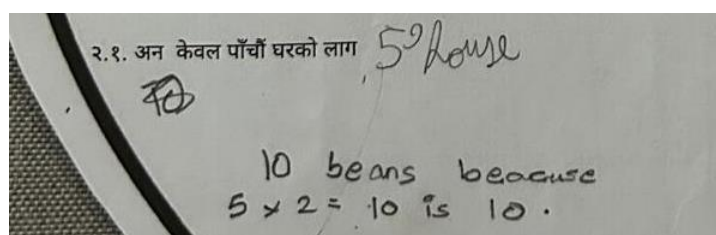 २.१. अन केवल पाँचौं घरको लाग 5 house
10 beans beacuse
5 × 2 = 10 is 10.